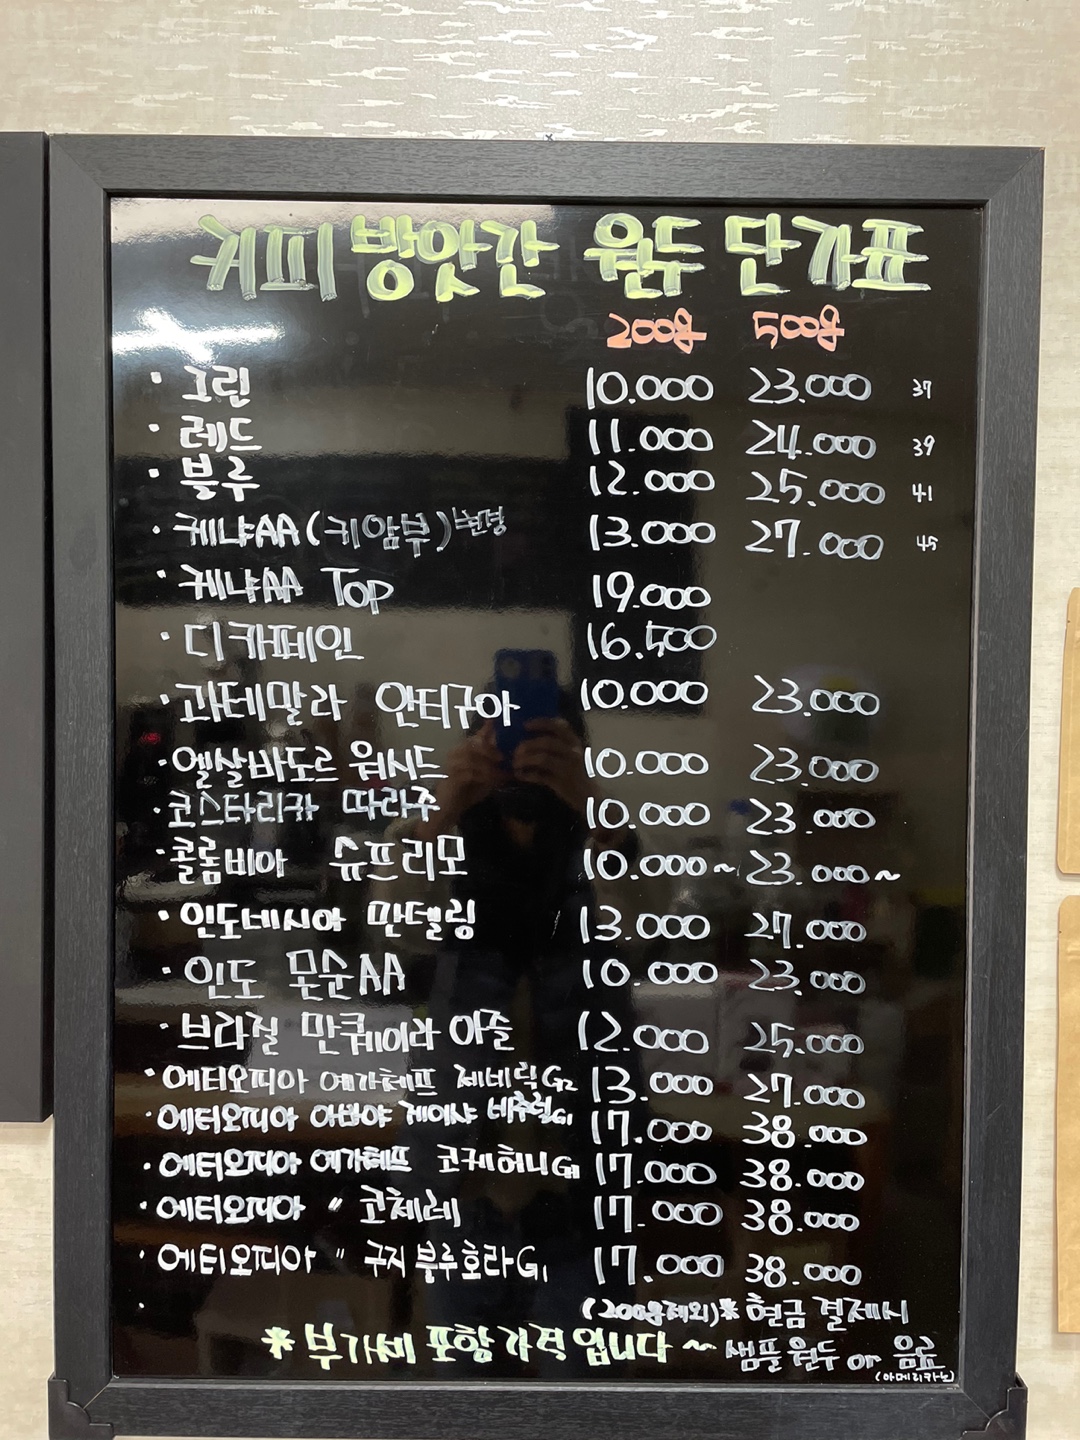 커피 방앗간 원두 단가표
200g 500g
· 그린 10.000 23.000 37
· 레드 11.000 24.000 39
· 블루 12.000 25.000 41
· 케냐AA (키암부) 변경 13.000 27.000 45
· 케냐AA TOP 19.000
· 디카페인 16.500
· 과테말라 안티구아 10.000 23.000
· 엘살바도르 워시드 10.000 23.000
· 코스타리카 따라주 10.000 23.000
· 콜롬비아 슈프리모 10.000~ 23.000~
· 인도네시아 만델링 13.000 27.000
· 인도 몬순AA 10.000 23.000
· 브라질 만퀘이라 아즐 12.000 25.000
· 에티오피아 예가체프 제네릭G2 13.000 27.000
· 에티오피아 아바야 게이샤 내추럴G1 17.000 38.000
· 에티오피아 예가체프 코케허니G1 17.000 38.000
· 에티오피아 " 코체레 17.000 38.000
· 에티오피아 " 구지 블루호라G1 17.000 38.000
· (200g제외)* 현금 결제시
* 부가비 포함가격 입니다 ~ 샘플원두 or 음료
(아메리카노)